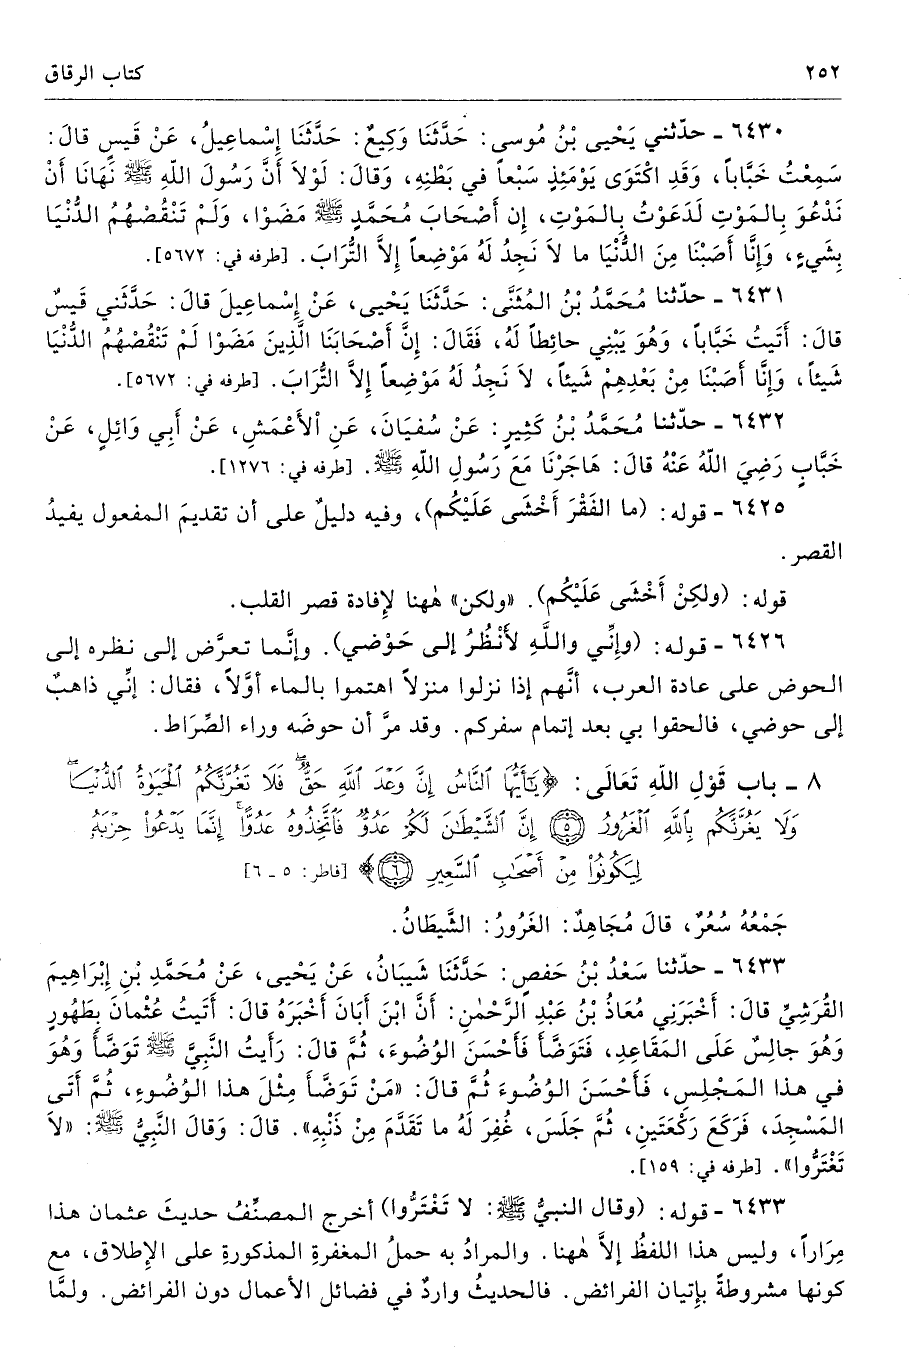 ٢٥٢ كتاب الرقاق
٦٤٣٠ ـ حدّثني يَحْيى بْنُ مُوسى: حَدَّثَنَا وَكِيعٌ: حَدَّثَنَا إِسْماعِيلُ، عَنْ قَيسٍ قالَ:
سَمِعْتُ خَبَّاباً، وَقَدِ اكْتَوَى يَوْمَئِذٍ سَبْعاً في بَطْنِهِ، وَقالَ: لَوْلاَ أَنَّ رَسُولَ اللّهِ ﷺ نَهَانَا أَنْ
نَدْعُوَ بِالمَوْتِ لَدَعَوْتُ بِالمَوْتِ، إِن أَصْحَابَ مُحَمَّدٍ ﷺ مَضَوْا، وَلَمْ تَنْقُصْهُمُ الدُّنْيَا
بِشَيءٍ، وَإِنَّا أَصَبْنَا مِنَ الدُّنْيَا ما لاَ نَجِدُ لَهُ مَوْضِعاً إِلاَّ التُّرَابَ. [طرفه في: ٥٦٧٢].
٦٤٣١ ـ حدّثنا مُحَمَّدُ بْنُ المُثَنَّى: حَدَّثَنَا يَحْيى، عَنْ إِسْماعِيلَ قالَ: حَدَّثَني قَيسٌ
قالَ: أَتَيتُ خَبَّاباً، وَهُوَ يَبْنِي حائِطاً لَهُ، فَقَالَ: إِنَّ أَصْحَابَنَا الَّذِينَ مَضَوْا لَمْ تَنْقُصْهُمُ الدُّنْيَا
شَيئاً، وَإِنَّا أَصَبْنَا مِنْ بَعْدِهِمْ شَيئاً، لاَ نَجِدُ لَهُ مَوْضِعاً إِلاَّ التُّرَابَ. [طرفه في: ٥٦٧٢].
٦٤٣٢ ـ حدّثنا مُحَمَّدُ بْنُ كَثِيرٍ: عَنْ سُفيَانَ، عَنِ الأَعْمَشِ، عَنْ أَبِي وَائِلٍ، عَنْ
خَبَّابٍ رَضِيَ اللّهُ عَنْهُ قالَ: هَاجَرْنَا مَعَ رَسُولِ اللّهِ ﷺ. [طرفه في: ١٢٧٦].
٦٤٢٥ ـ قوله: (ما الفَقْرَ أَخْشَى عَلَيْكُم)، وفيه دليلٌ على أن تقديمَ المفعول يفيدُ
القصر.
قوله: (ولكِنْ أَخْشَى عَلَيْكُم). «ولكن» هٰهنا لإِفادة قصر القلب.
٦٤٢٦ ـ قوله: (وإنِّي واللَّهِ لأَنْظُرُ إلى حَوْضي). وإنَّما تعرَّض إلى نظره إلى
الحوض على عادة العرب، أنَّهم إذا نزلوا منزلاً اهتموا بالماء أوَّلاً، فقال: إنِّي ذاهبٌ
إلى حوضي، فالحقوا بي بعد إتمام سفركم. وقد مرَّ أن حوضَه وراء الصِّرَاط.
٨ ـ باب قَوْلِ اللّهِ تَعَالَى: ﴿يَٰٓأَيُّهَا ٱلنَّاسُ إِنَّ وَعْدَ ٱللَّهِ حَقٌّۖ فَلَا تَغُرَّنَّكُمُ ٱلْحَيَوٰةُ ٱلدُّنْيَاۖ
وَلَا يَغُرَّنَّكُم بِٱللَّهِ ٱلْغَرُورُ ۝٥ إِنَّ ٱلشَّيْطَٰنَ لَكُمْ عَدُوٌّ فَٱتَّخِذُوهُ عَدُوًّاۚ إِنَّمَا يَدْعُوا۟ حِزْبَهُۥ
لِيَكُونُوا۟ مِنْ أَصْحَٰبِ ٱلسَّعِيرِ ۝٦﴾ [فاطر: ٥ ـ ٦]
جَمْعُهُ سُعُرٌ، قالَ مُجَاهِدٌ: الغَرُورُ: الشَّيطَانُ.
٦٤٣٣ ـ حدّثنا سَعْدُ بْنُ حَفصٍ: حَدَّثَنَا شَيبَانُ، عَنْ يَحْيى، عَنْ مُحَمَّدِ بْنِ إِبْرَاهِيمَ
القُرَشِيِّ قالَ: أَخْبَرَنِي مُعَاذُ بْنُ عَبْدِ الرَّحْمٰنِ: أَنَّ ابْنَ أَبَانَ أَخْبَرَهُ قالَ: أَتَيتُ عُثْمانَ بِطَهُورٍ
وَهُوَ جالِسٌ عَلَى المَقَاعِدِ، فَتَوَضَّأَ فَأَحْسَنَ الوُضُوءَ، ثُمَّ قالَ: رَأَيتُ النَّبِيَّ ﷺ تَوَضَّأَ وَهُوَ
في هذا المَجْلِسِ، فَأَحْسَنَ الوُضُوءَ ثُمَّ قالَ: «مَنْ تَوَضَّأَ مِثْلَ هذا الوُضُوءِ، ثُمَّ أَتَى
المَسْجِدَ، فَرَكَعَ رَكْعَتَينِ، ثُمَّ جَلَسَ، غُفِرَ لَهُ ما تَقَدَّمَ مِنْ ذَنْبِهِ». قالَ: وَقالَ النَّبِيُّ ﷺ: «لاَ
تَغْتَرُّوا». [طرفه في: ١٥٩].
٦٤٣٣ ـ قوله: (وقال النبيُّ ﷺ: لا تَغْتَرُّوا) أخرج المصنِّفُ حديثَ عثمان هذا
مِرَاراً، وليس هذا اللفظُ إلاَّ هٰهنا. والمرادُ به حملُ المغفرةِ المذكورةِ على الإِطلاق، مع
كونها مشروطةً بإِتيان الفرائض. فالحديثُ واردٌ في فضائل الأعمال دون الفرائض. ولمَّا